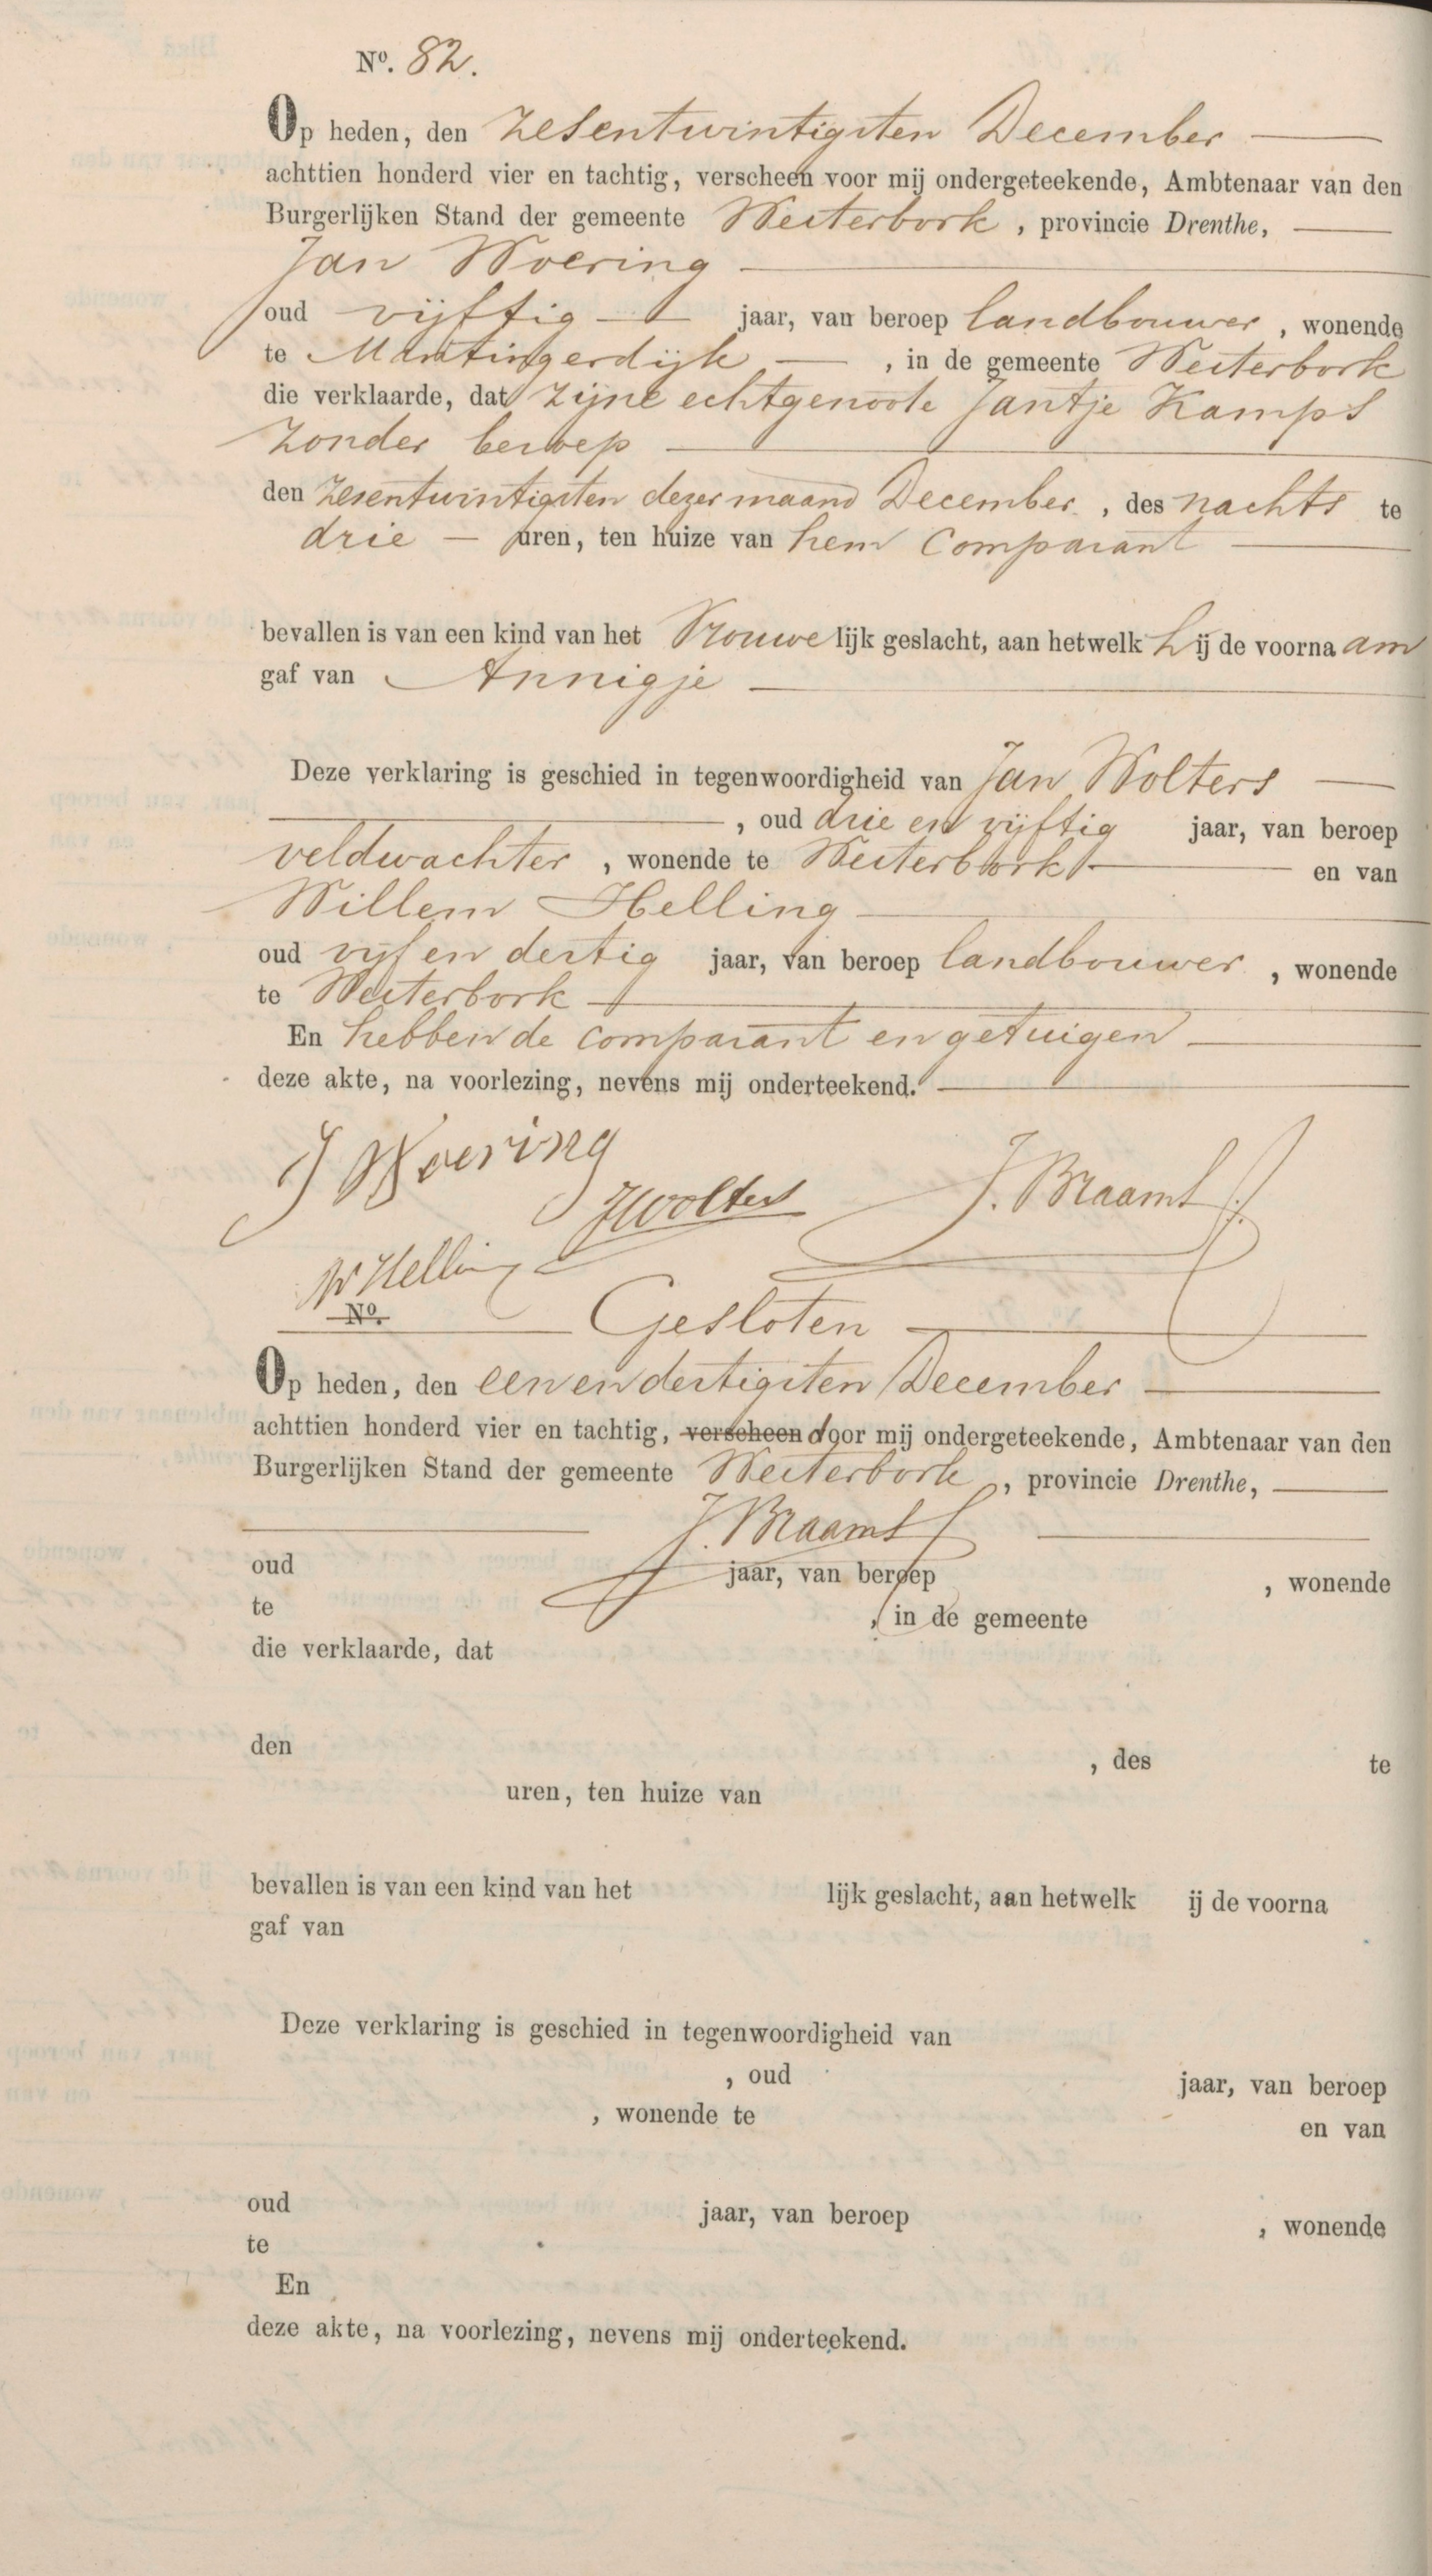 No. 82.
Op heden, den zesentwintigsten December
achttien honderd vier en tachtig, verscheen voor mij ondergeteekende, Ambtenaar van den
Burgerlijken Stand der gemeente Westerbork, provincie Drenthe,
Jan Woering
oud vijftig jaar, van beroep landbouwer, wonende
te Mantingerdijk, in de gemeente Westerbork
die verklaarde, dat zijne echtgenoote Jantje Kamps
zonder beroep
den zesentwintigsten dezer maand December, des nachts te
drie uren, ten huize van hem Comparant
bevallen is van een kind van het Vrouwelijk geslacht, aan hetwelk hij de voornaam
gaf van Annigje
Deze verklaring is geschied in tegenwoordigheid van Jan Wolters
, oud drie en vijftig jaar, van beroep
veldwachter, wonende te Westerbork en van
Willem Helling
oud vijf en dertig jaar, van beroep landbouwer, wonende
te Westerbork
En hebben de comparant en getuigen
deze akte, na voorlezing, nevens mij onderteekend.
J Woering
J Wolters J. Braams
W Helling
No.
Gesloten
Op heden, den eenendertigsten December
achttien honderd vier en tachtig, verscheen door mij ondergeteekende, Ambtenaar van den
Burgerlijken Stand der gemeente Westerbork, provincie Drenthe,
J. Braams
oud jaar, van beroep , wonende
te , in de gemeente
die verklaarde, dat
den , des te
uren, ten huize van
bevallen is van een kind van het lijk geslacht, aan hetwelk ij de voorna
gaf van
Deze verklaring is geschied in tegenwoordigheid van
, oud jaar, van beroep
, wonende te en van
oud jaar, van beroep , wonende
te
En
deze akte, na voorlezing, nevens mij onderteekend.